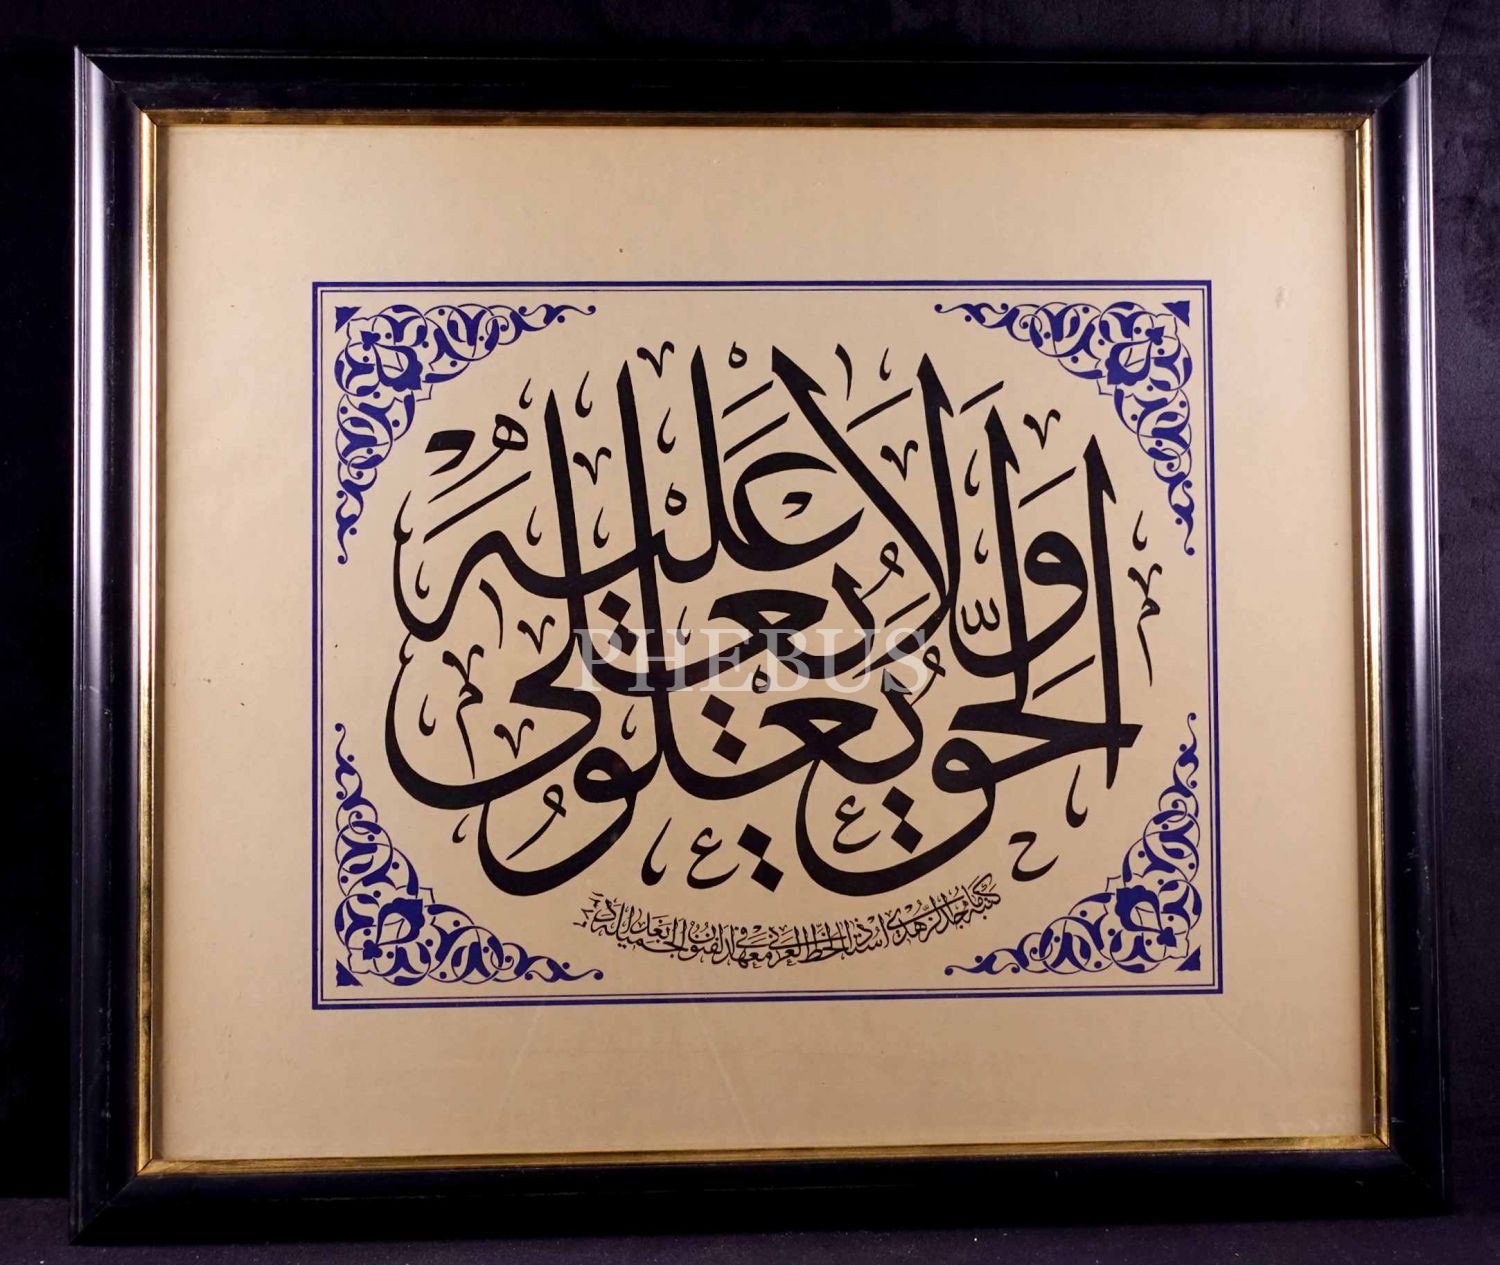 الحَقُّ يَعْلُو وَلَا يُعْلَى عَلَيْهِ
كتبه ماجد الزهدي استاذ الخط العربي في معهد الفنون الجميلة ببغداد
PHEBUS